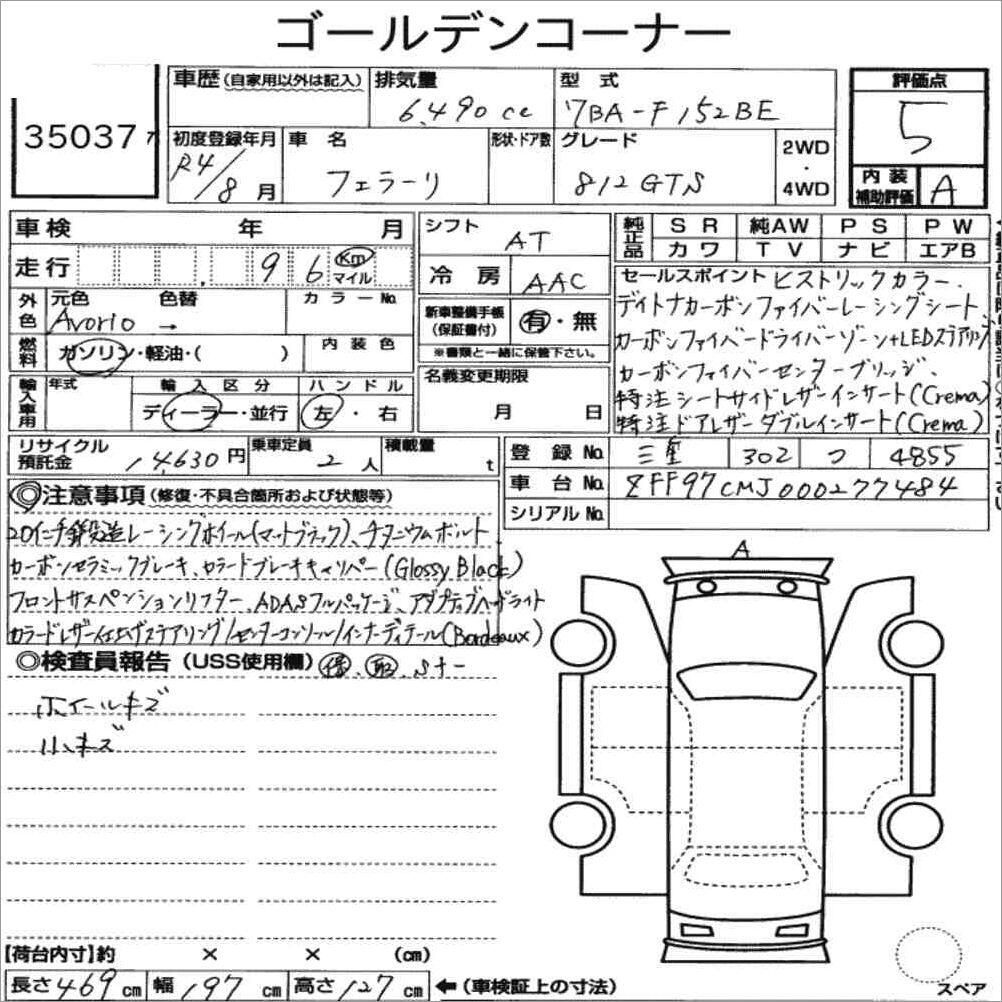 ゴールデンコーナー
35037
車歴(自家用以外は記入) 排気量 6,490cc 型式 7BA-F152BE
評価点 5
初度登録年月 R4/8月 車名 フェラーリ 形状・ドア数 グレード 812GTS 2WD・4WD
内装補助評価 A
車検 年 月 シフト AT
純正品 SR 純AW PS PW
カワ TV ナビ エアB
走行 96 Km マイル
冷房 AAC
外色 元色 色替 カラーNo.
Avorio →
新車整備手帳(保証書付) 有・無
※書類と一緒に保管下さい。
燃料 ガソリン・軽油・( ) 内装色
輸入車用 年式 輸入区分 ハンドル
ディーラー・並行 左・右
名義変更期限
月 日
セールスポイント ヒストリックカラー、
デイトナカーボンファイバーレーシングシート、
カーボンファイバードライバーゾーン+LEDステアリング
カーボンファイバーセンターブリッジ、
特注シートサイドレザーインサート(Crema)
特注ドアレザーダブルインサート(Crema)
リサイクル預託金 14,630円 乗車定員 2人 積載量 t
登録No. 三重 302 つ 4855
車台No. ZFF97CMJ000277484
シリアルNo.
◎注意事項(修復・不具合箇所および状態等)
20インチ鍛造レーシングホイール(マットブラック)、チタニウムボルト
カーボンセラミックブレーキ、カラードブレーキキャリパー(Glossy Black)
フロントサスペンションリフター、ADASフルパッケージ、アダプティブヘッドライト
カラードレザー仕上げステアリング/センターコンソール/インナーディテール(Bordeaux)
◎検査員報告(USS使用欄) 保、取、Sナー
ホイールキズ
小キズ
A
【荷台内寸】約 × × (cm)
長さ469cm 幅197cm 高さ127cm ←(車検証上の寸法)
スペア